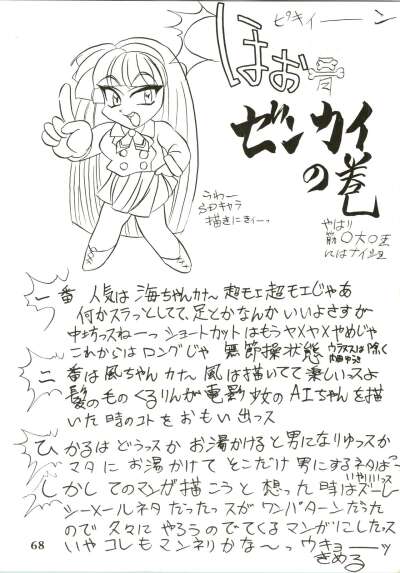 ピキィーーン
ほお骨
ゼンカイ
の巻
うわー
SDキャラ
描きにきぃー。
やはり
筋〇大〇王
にはナイショ
一番 人気は 海ちゃんカナー 超モエ超モエじゃあ
何かスラっとしてて、足とかなんか いいよさすが
中坊っスねーっ ショートカットはもうヤメヤメやめじゃ
これからは ロングじゃ 無節操状態
ウラヌスは除く
二番は風ちゃん カナー 風は描いてて楽しいっスよ
髪の毛のくるりんが電影少女のAIちゃんを描
いた時のコトを おもい出っス
ひかるは どうっスか お湯かけると男になりゅっスか
マタに お湯かけて そこだけ 男にするネタは
いやいいっス
しかし てのマンガ描こうと 想った時は ズーレ
シーメールネタ だったっスが ワンパターンだったら
ので 久々に やろうのででてくるマンガにしたっス
いや コレもマンネリかなーーっ ウキョーーッ
きめる
68